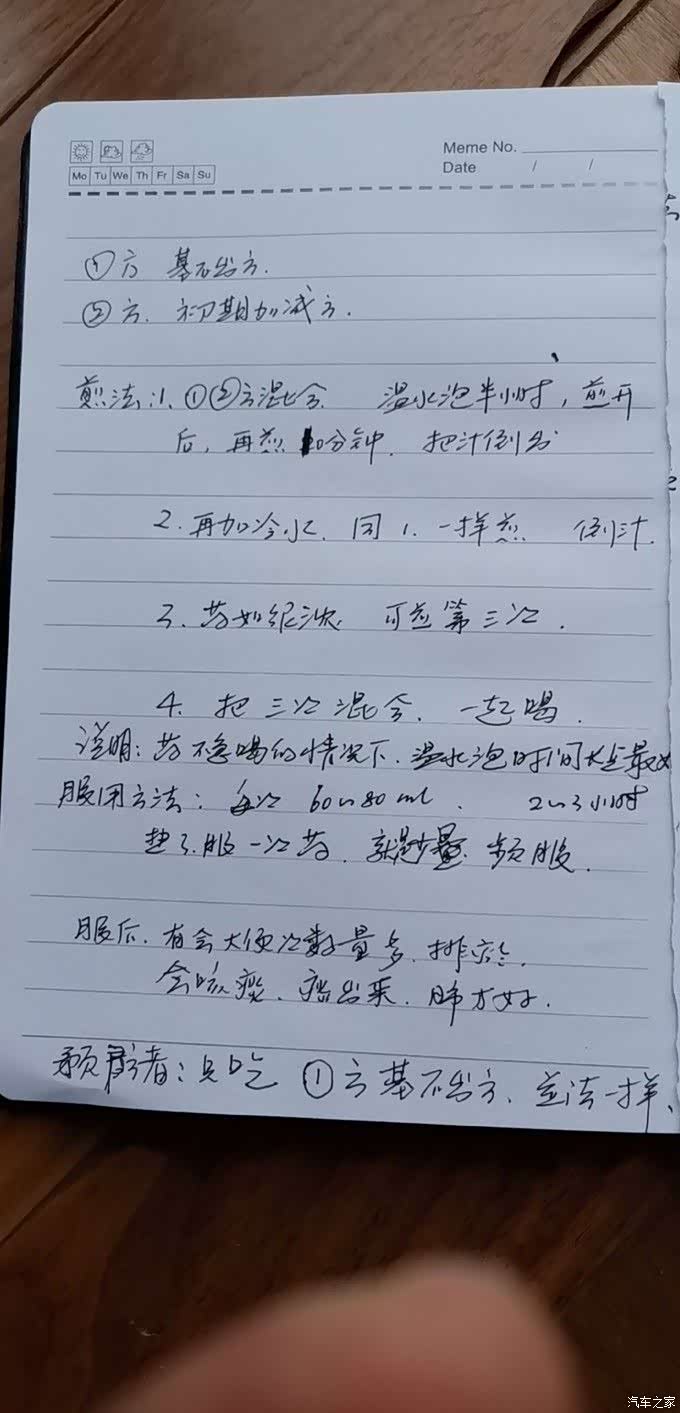 Meme No.
Date / /
Mo Tu We Th Fr Sa Su
①方 基础方.
②方. 初期加减方.
煎法:1. ①②方混合. 温水泡半小时, 煎开
后, 再煎 10分钟. 把汁倒出
2. 再加冷水. 同1. 一样煎 倒汁.
3. 药如很浓. 可煎第三次.
4. 把三次混合. 一起喝.
说明: 药不急喝的情况下. 温水泡时间长点最好
服用方法: 每次 60~80ml. 2~3小时
服一次药. 就是少量 频服.
服后. 有会大便次数量多. 排
会咳痰. 痰出来. 肺才好.
预防者: 只吃 ①方基础方. 煎法一样.
汽车之家